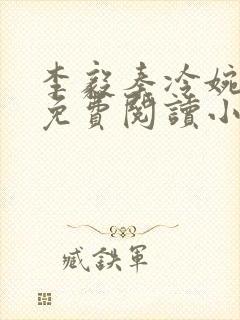 李毅秦冷婉
免費閱讀小
臧鉄軍